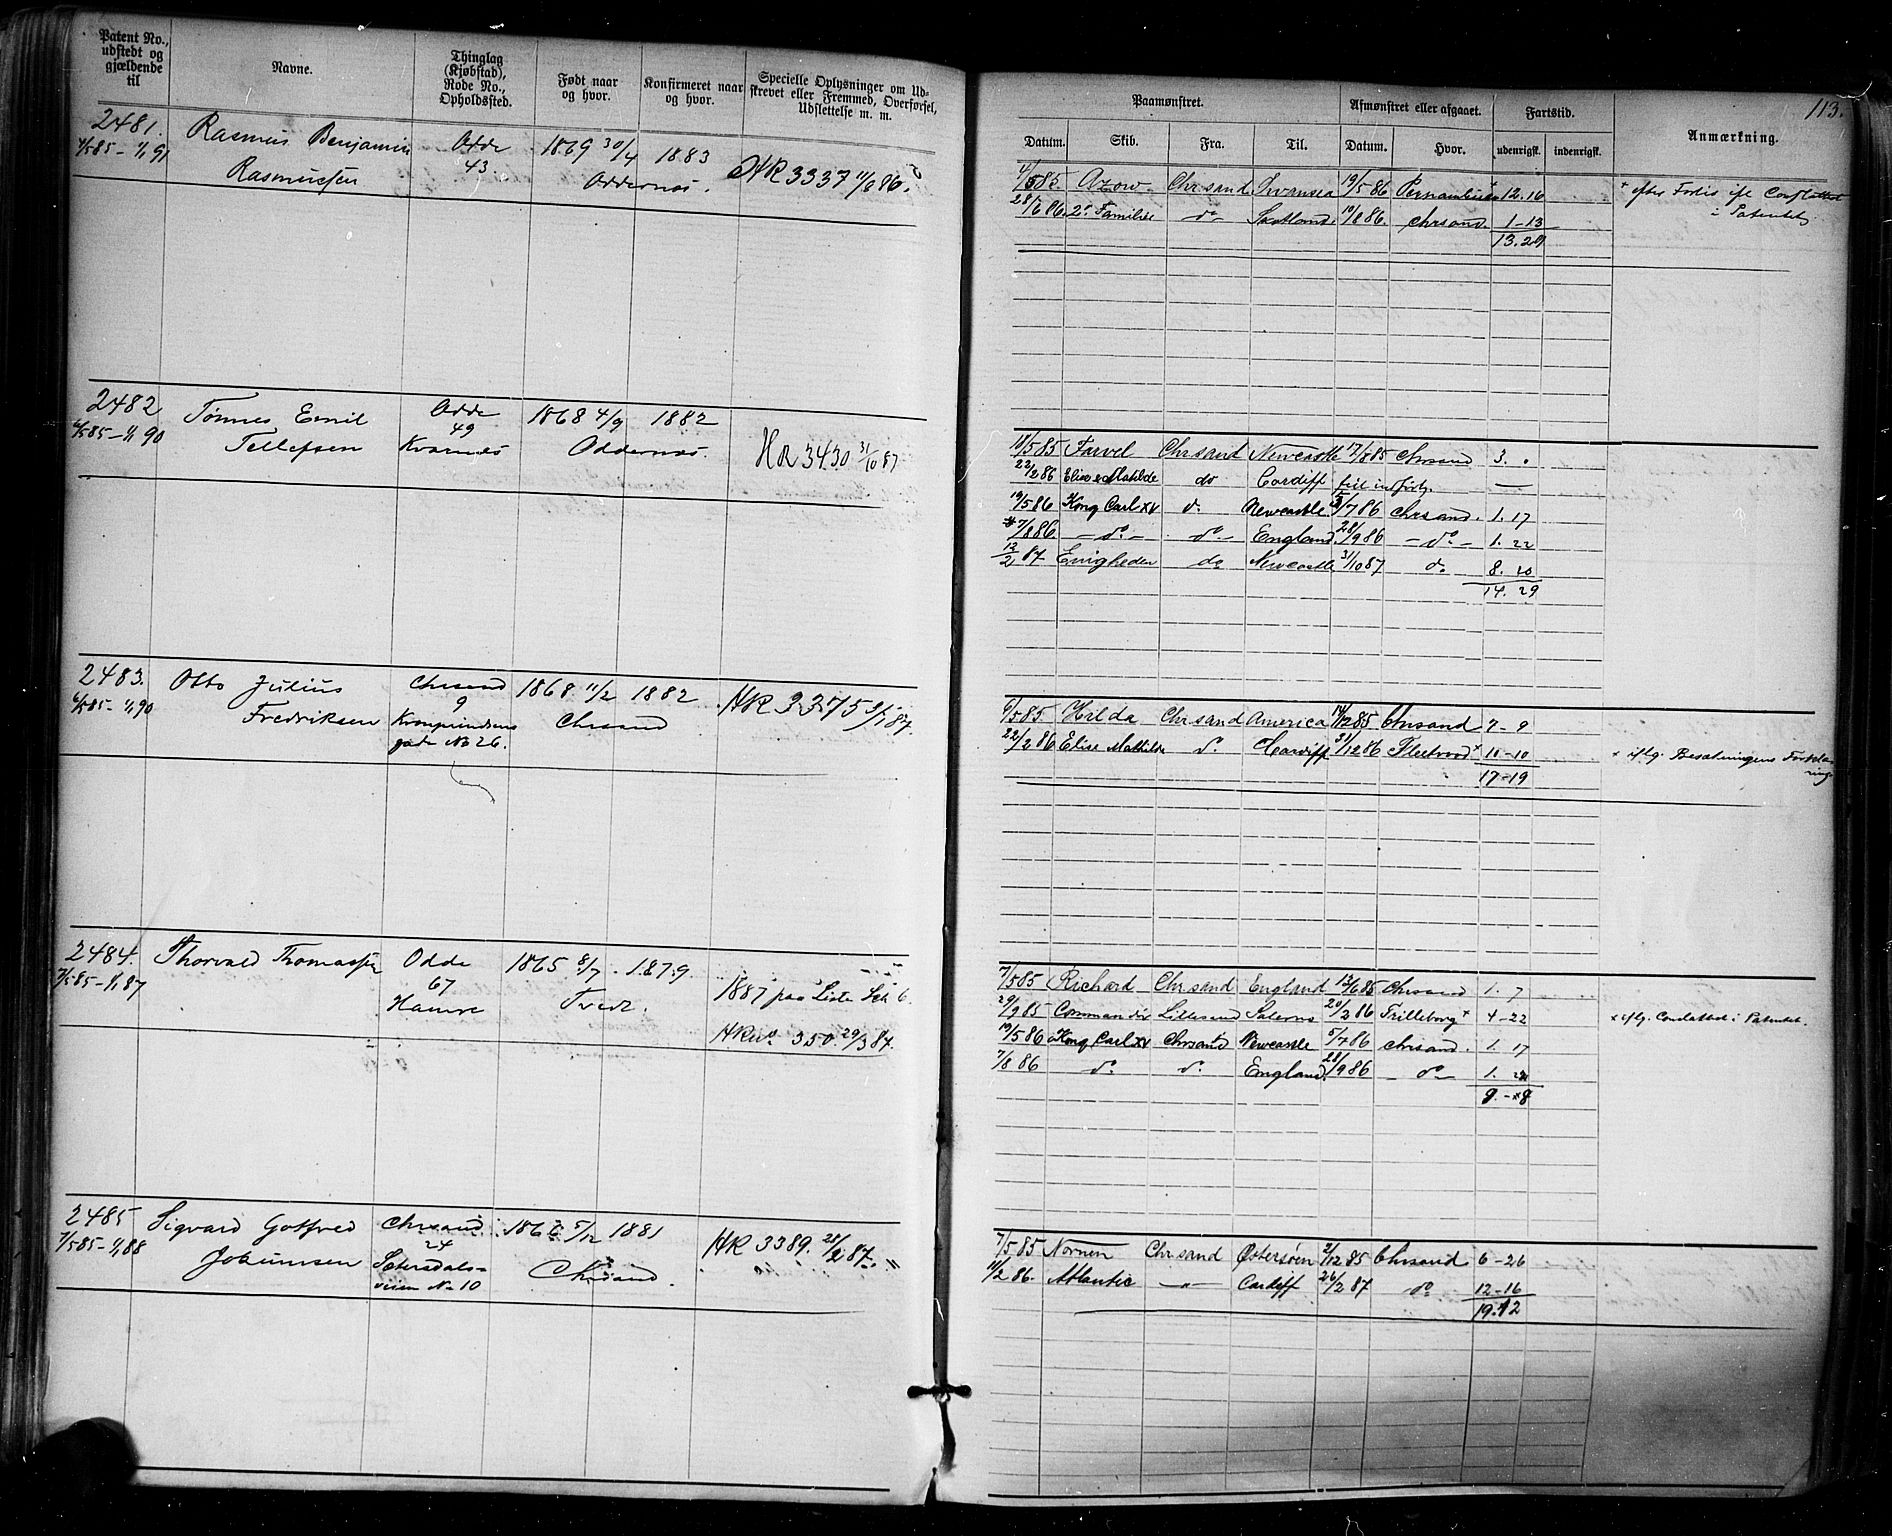 Patent No.,
udstedt og
gjældende
til
Navne.
Thinglag
(Kjøbstad),
Rode No.,
Opholdssted.
Født naar
og hvor.
Konfirmeret naar
og hvor.
Specielle Oplysninger om Ud-
skrevet eller Fremmed, Overførsel,
Udslettelse m. m.
2481. Rasmus Benjamin Odde 1869 30/4 1883
4/5 85 – 1/1 91 Rasmussen 43. Oddernæs. HR 3337 11/8 86.
2482 Tønnes Emil Odde 1868 4/9 1882
6/5 85 – 1/1 90 Tellefsen 49 Oddernæs. HR 3430 31/10 87
Kvarnes
2483. Otto Julius Chrsand 1868 11/2 1882 HR 3375 3/1 87.
6/5 85 – 1/1 90 Fredriksen 9 Chrsand
Kronprindsens
gade No 26.
2484. Thorvald Thomassen Odde 1865 8/7 1879.
7/5 85 – 1/1 87 67 Tvedt. 1887 paa Liste Litr 6.
Hamre
HR No 350. 29/3 87.
2485 Sigvard Gotfred Chrsand 5/12 1881 HR 3389. 28/2 87.
7/5 85 – 1/1 88 24 Chrsand.
Setersdals-
veien No 10
113.
Paamønstret.
Afmønstret eller afgaaet.
Fartstid.
Anmærkning.
Datum. Skib. Fra. Til. Datum. Hvor. udenrigsk. indenrigsk.
4/5 85 Azow Chrsand Swansea 19/5 86 Pernambuco + 12. 16 + efter
28/6 86. 2de Familie do Scotland. 10/8 86. Chrsand. 1–13 i Patentet.
13. 29
11/5 85 Farvel Chrsand Newcastle 17/8 85 Chrsand 3.
22/2 86 Elise & Matilde do Cardiff
19/5 86 Kong Carl XV do Newcastle 5/7 86 Chrsand. 1. 17
7/8 86 – do – do – England. 28/9 86 – do – 1. 22
12/2 87 Enigheden do Newcastle 31/10 87 do 8. 20
14. 29
6/5 85 Hilda Chrsand America 14/12 85 Chrsand 7–9
22/2 86 Elise Mathilde do Cardiff 31/12 86 Fleetwood + 10–10 + iflg. Besætningens Forkla-
ring
17–19
7/5 85 Richard Chrsand England 13/6 85 Chrsand 1. 7
29/9 85 Commandør Lillesand Salerno 20/2 86 Trelleborg + 4–22 + iflg. i Patentet.
19/5 86 Kong Carl XV Chrsand Newcastle 5/7 86 Chrsand. 1. 17
7/8 86 do do England. 28/9 86 – do – 1. 22
9. – 8
7/5 85 Nornen Chrsand Østersøen 2/12 85 Chrsand 6–26
11/2 86. Atlantic –"– Cardiff 26/2 87 do 12–16
19. 12